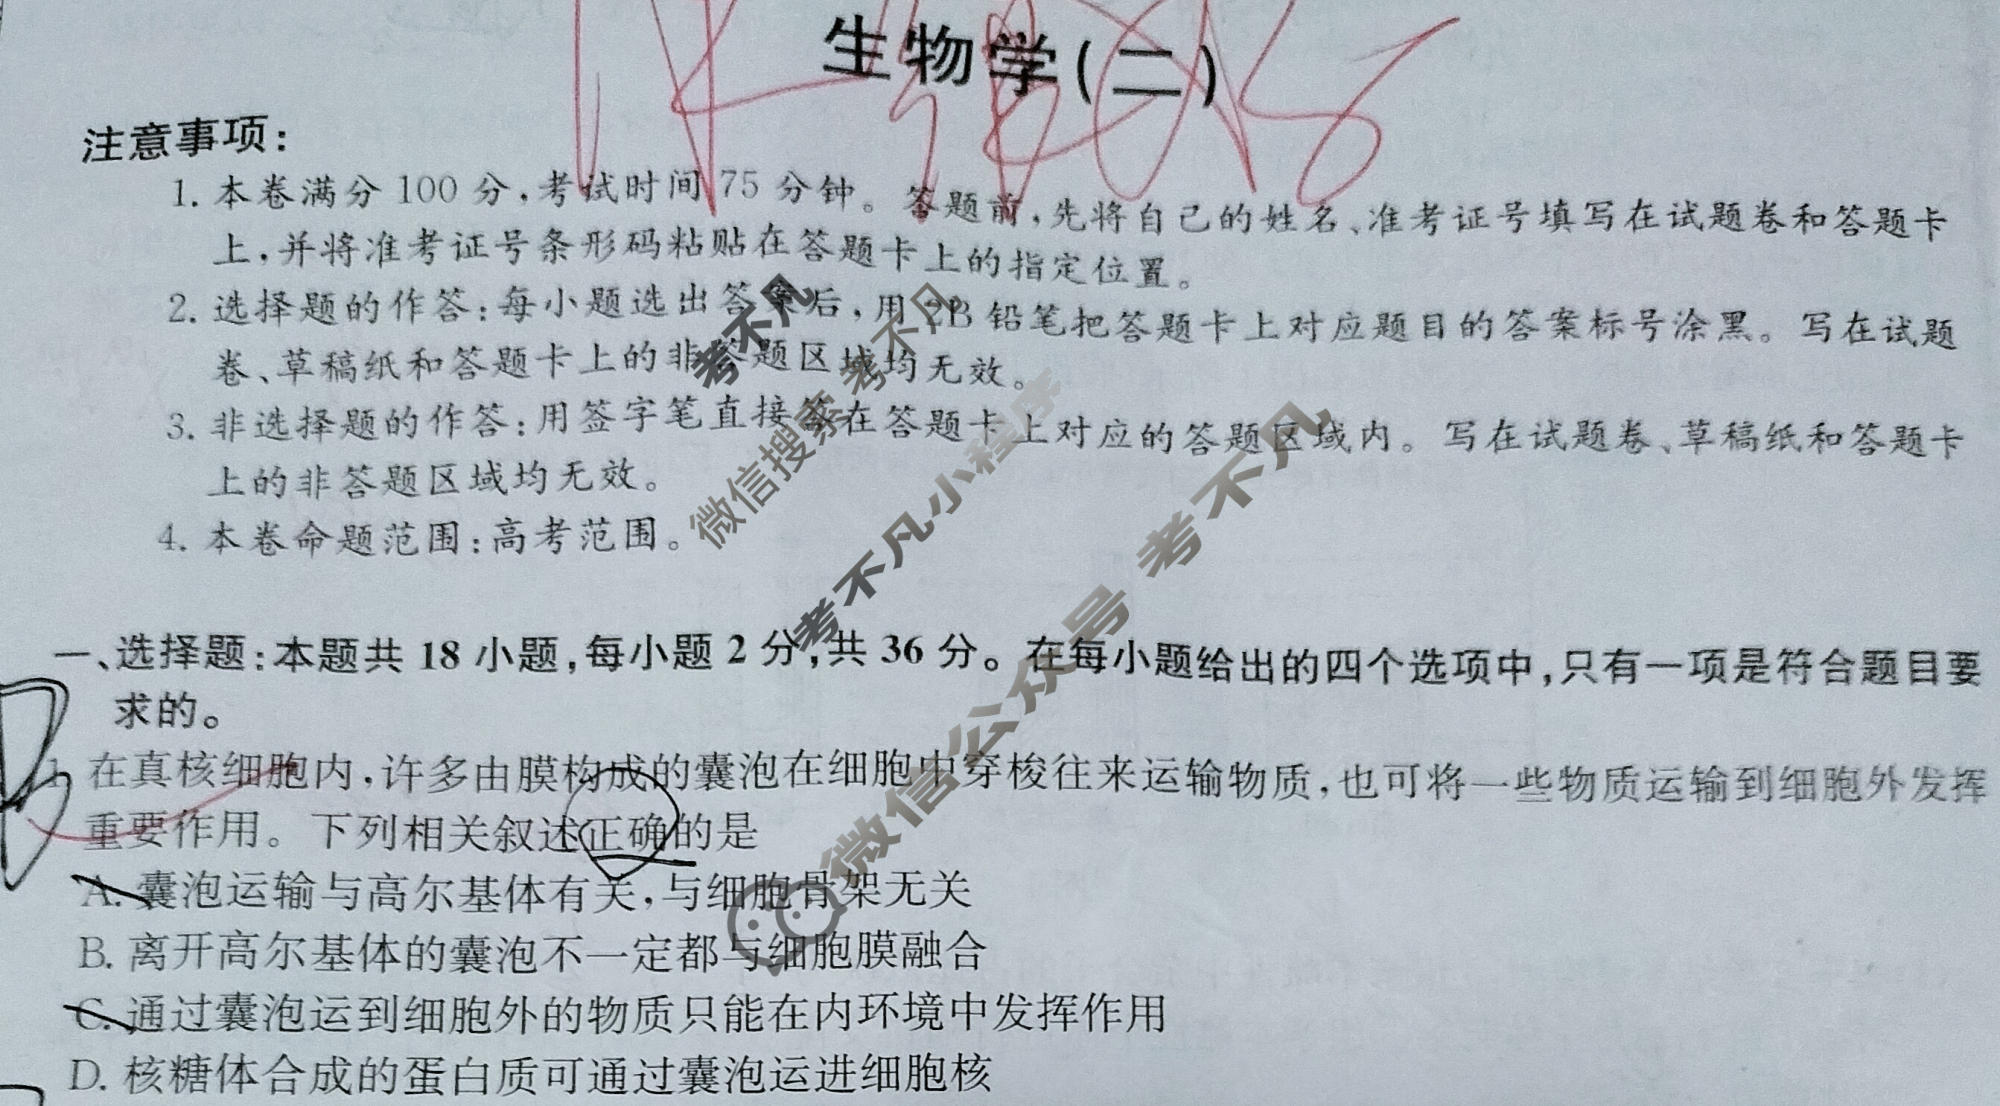 生物学(二)
注意事项:
1. 本卷满分 100 分,考试时间 75 分钟。答题前,先将自己的姓名、准考证号填写在试题卷和答题卡
上,并将准考证号条形码粘贴在答题卡上的指定位置。
2. 选择题的作答:每小题选出答案后,用 2B 铅笔把答题卡上对应题目的答案标号涂黑。写在试题
卷、草稿纸和答题卡上的非答题区域均无效。
3. 非选择题的作答:用签字笔直接答在答题卡上对应的答题区域内。写在试题卷、草稿纸和答题卡
上的非答题区域均无效。
4. 本卷命题范围:高考范围。
考不凡
微信搜索 考不凡
考不凡小程序
微信公众号 考不凡
一、选择题:本题共 18 小题,每小题 2 分,共 36 分。在每小题给出的四个选项中,只有一项是符合题目要
求的。
B
1. 在真核细胞内,许多由膜构成的囊泡在细胞中穿梭往来运输物质,也可将一些物质运输到细胞外发挥
重要作用。下列相关叙述正确的是
A. 囊泡运输与高尔基体有关,与细胞骨架无关
B. 离开高尔基体的囊泡不一定都与细胞膜融合
C. 通过囊泡运到细胞外的物质只能在内环境中发挥作用
D. 核糖体合成的蛋白质可通过囊泡运进细胞核